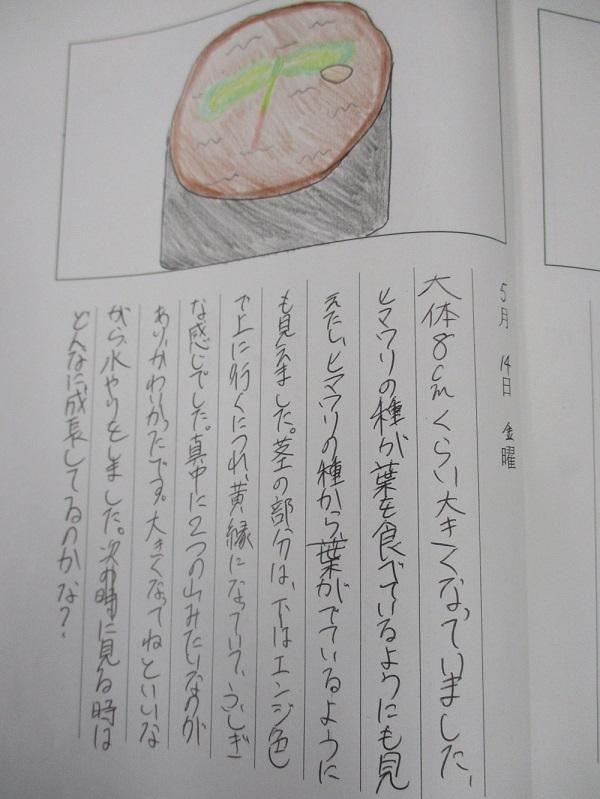 5月 14日 金曜
大体8cmくらい大きくなっていました。
ヒマワリの種が葉を食べているようにも見
えたし、ヒマワリの種から葉がでているように
も見えました。茎の部分は、下はエンジ色
で上に行くにつれ、黄縁になっていて、ふしぎ
な感じでした。真中に2つの山みたいなのが
あり、かわいかったです。大きくなってねといいな
がら、水やりをしました。次の時に見る時は
どんなに、成長してるのかな？